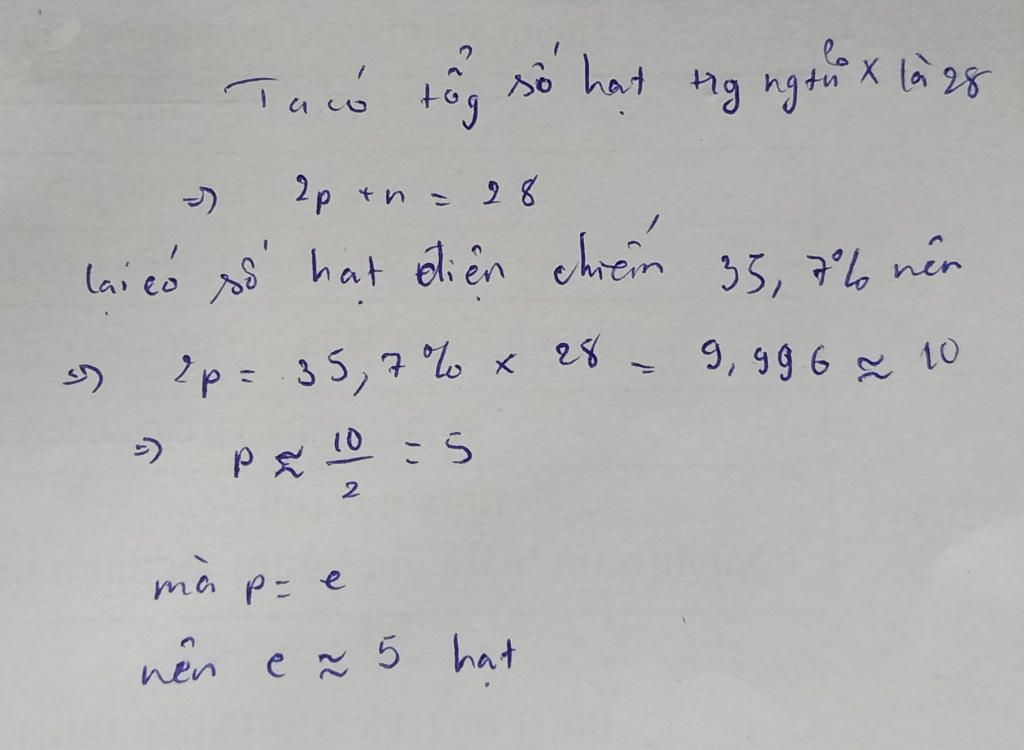 Ta có tổg số hạt trg ngtử X là 28
=> 2p + n = 28
lại có số hạt điện chiếm 35,7% nên
=> 2p = 35,7% x 28 = 9,996 ≈ 10
=> p ≈ 10/2 = 5
mà p = e
nên e ≈ 5 hạt